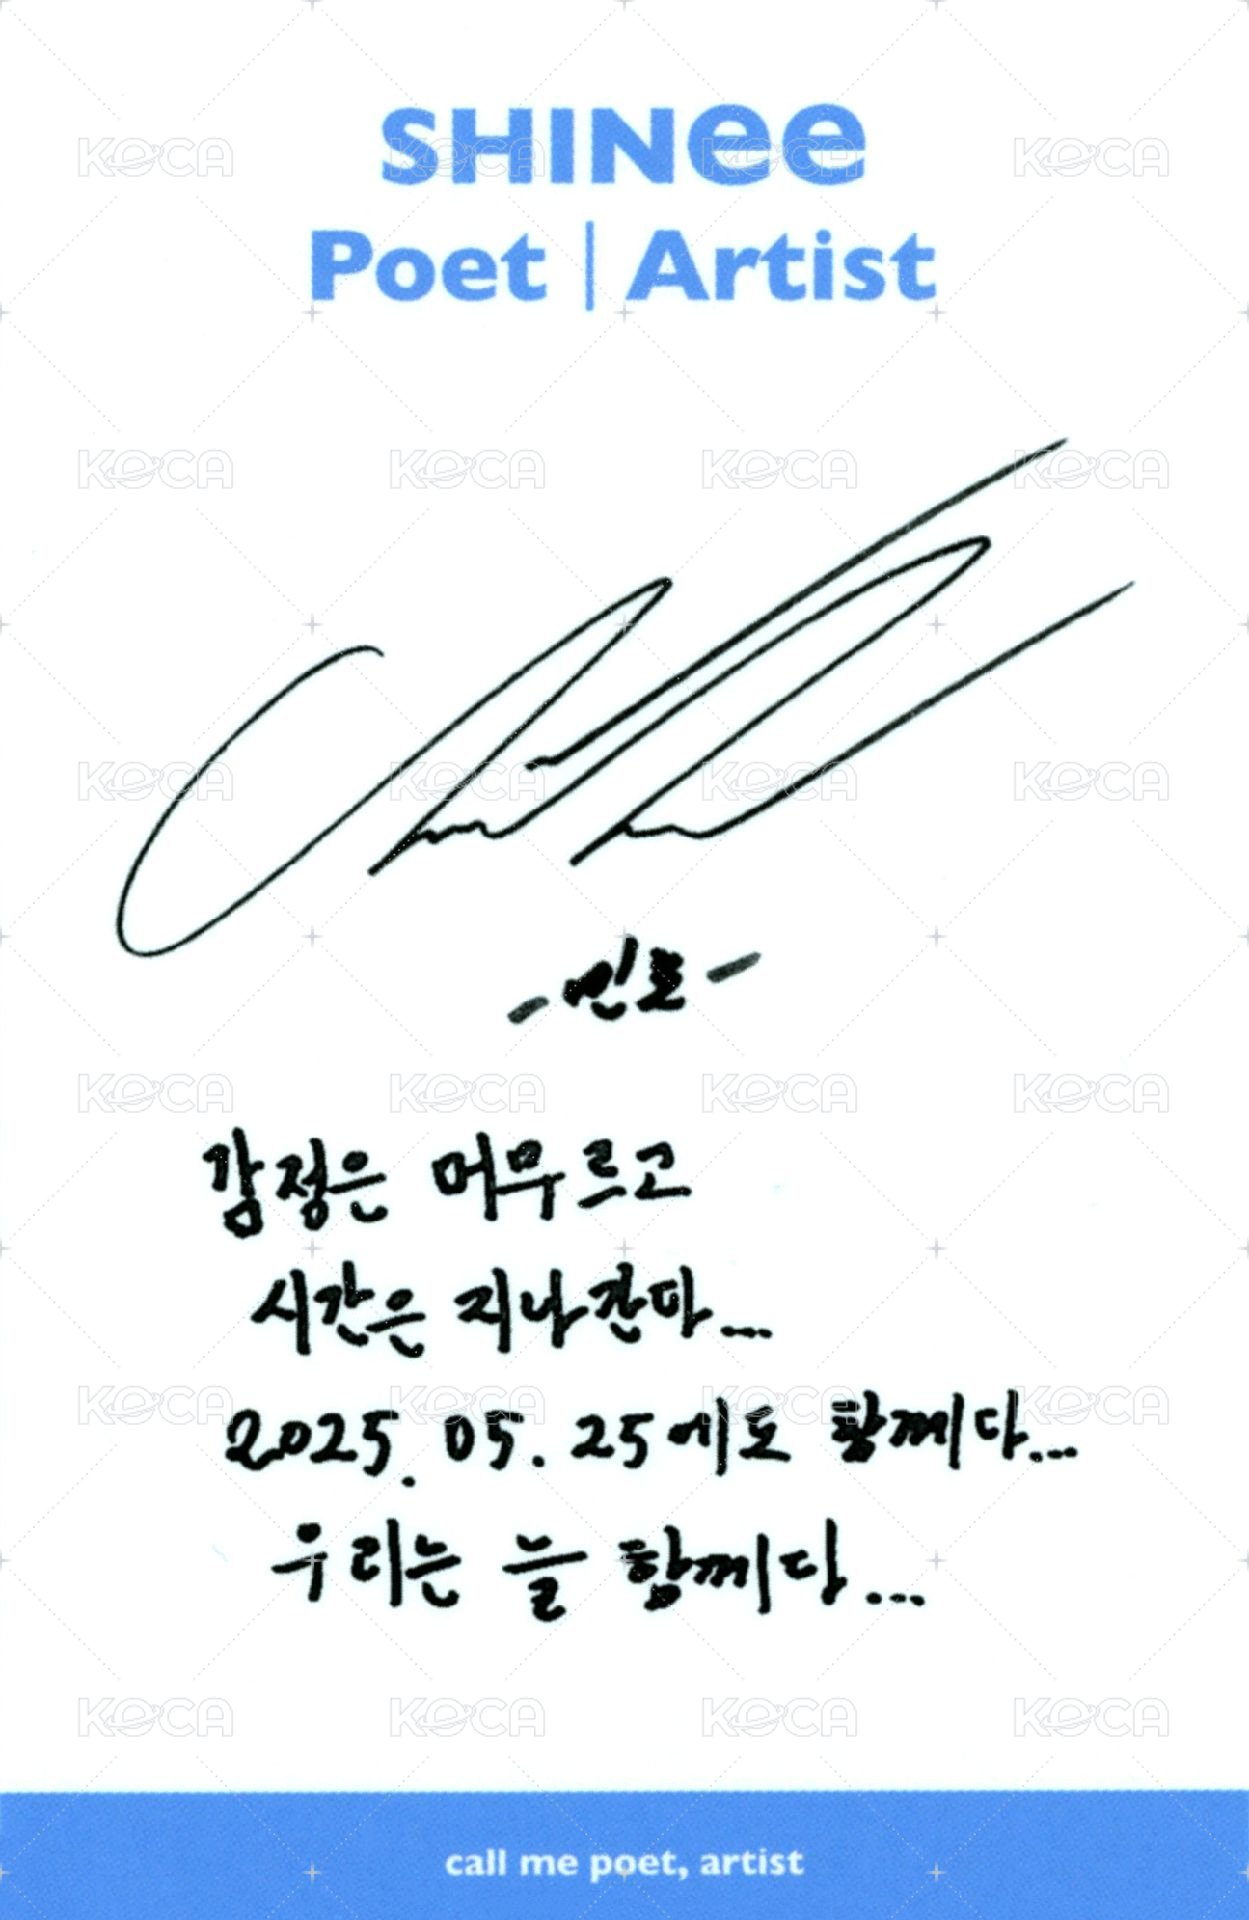 SHINee
Poet | Artist
-민호-
감정은 머무르고
시간은 지나간다...
2025. 05. 25에도 함께다...
우리는 늘 함께다...
call me poet, artist
KOCA